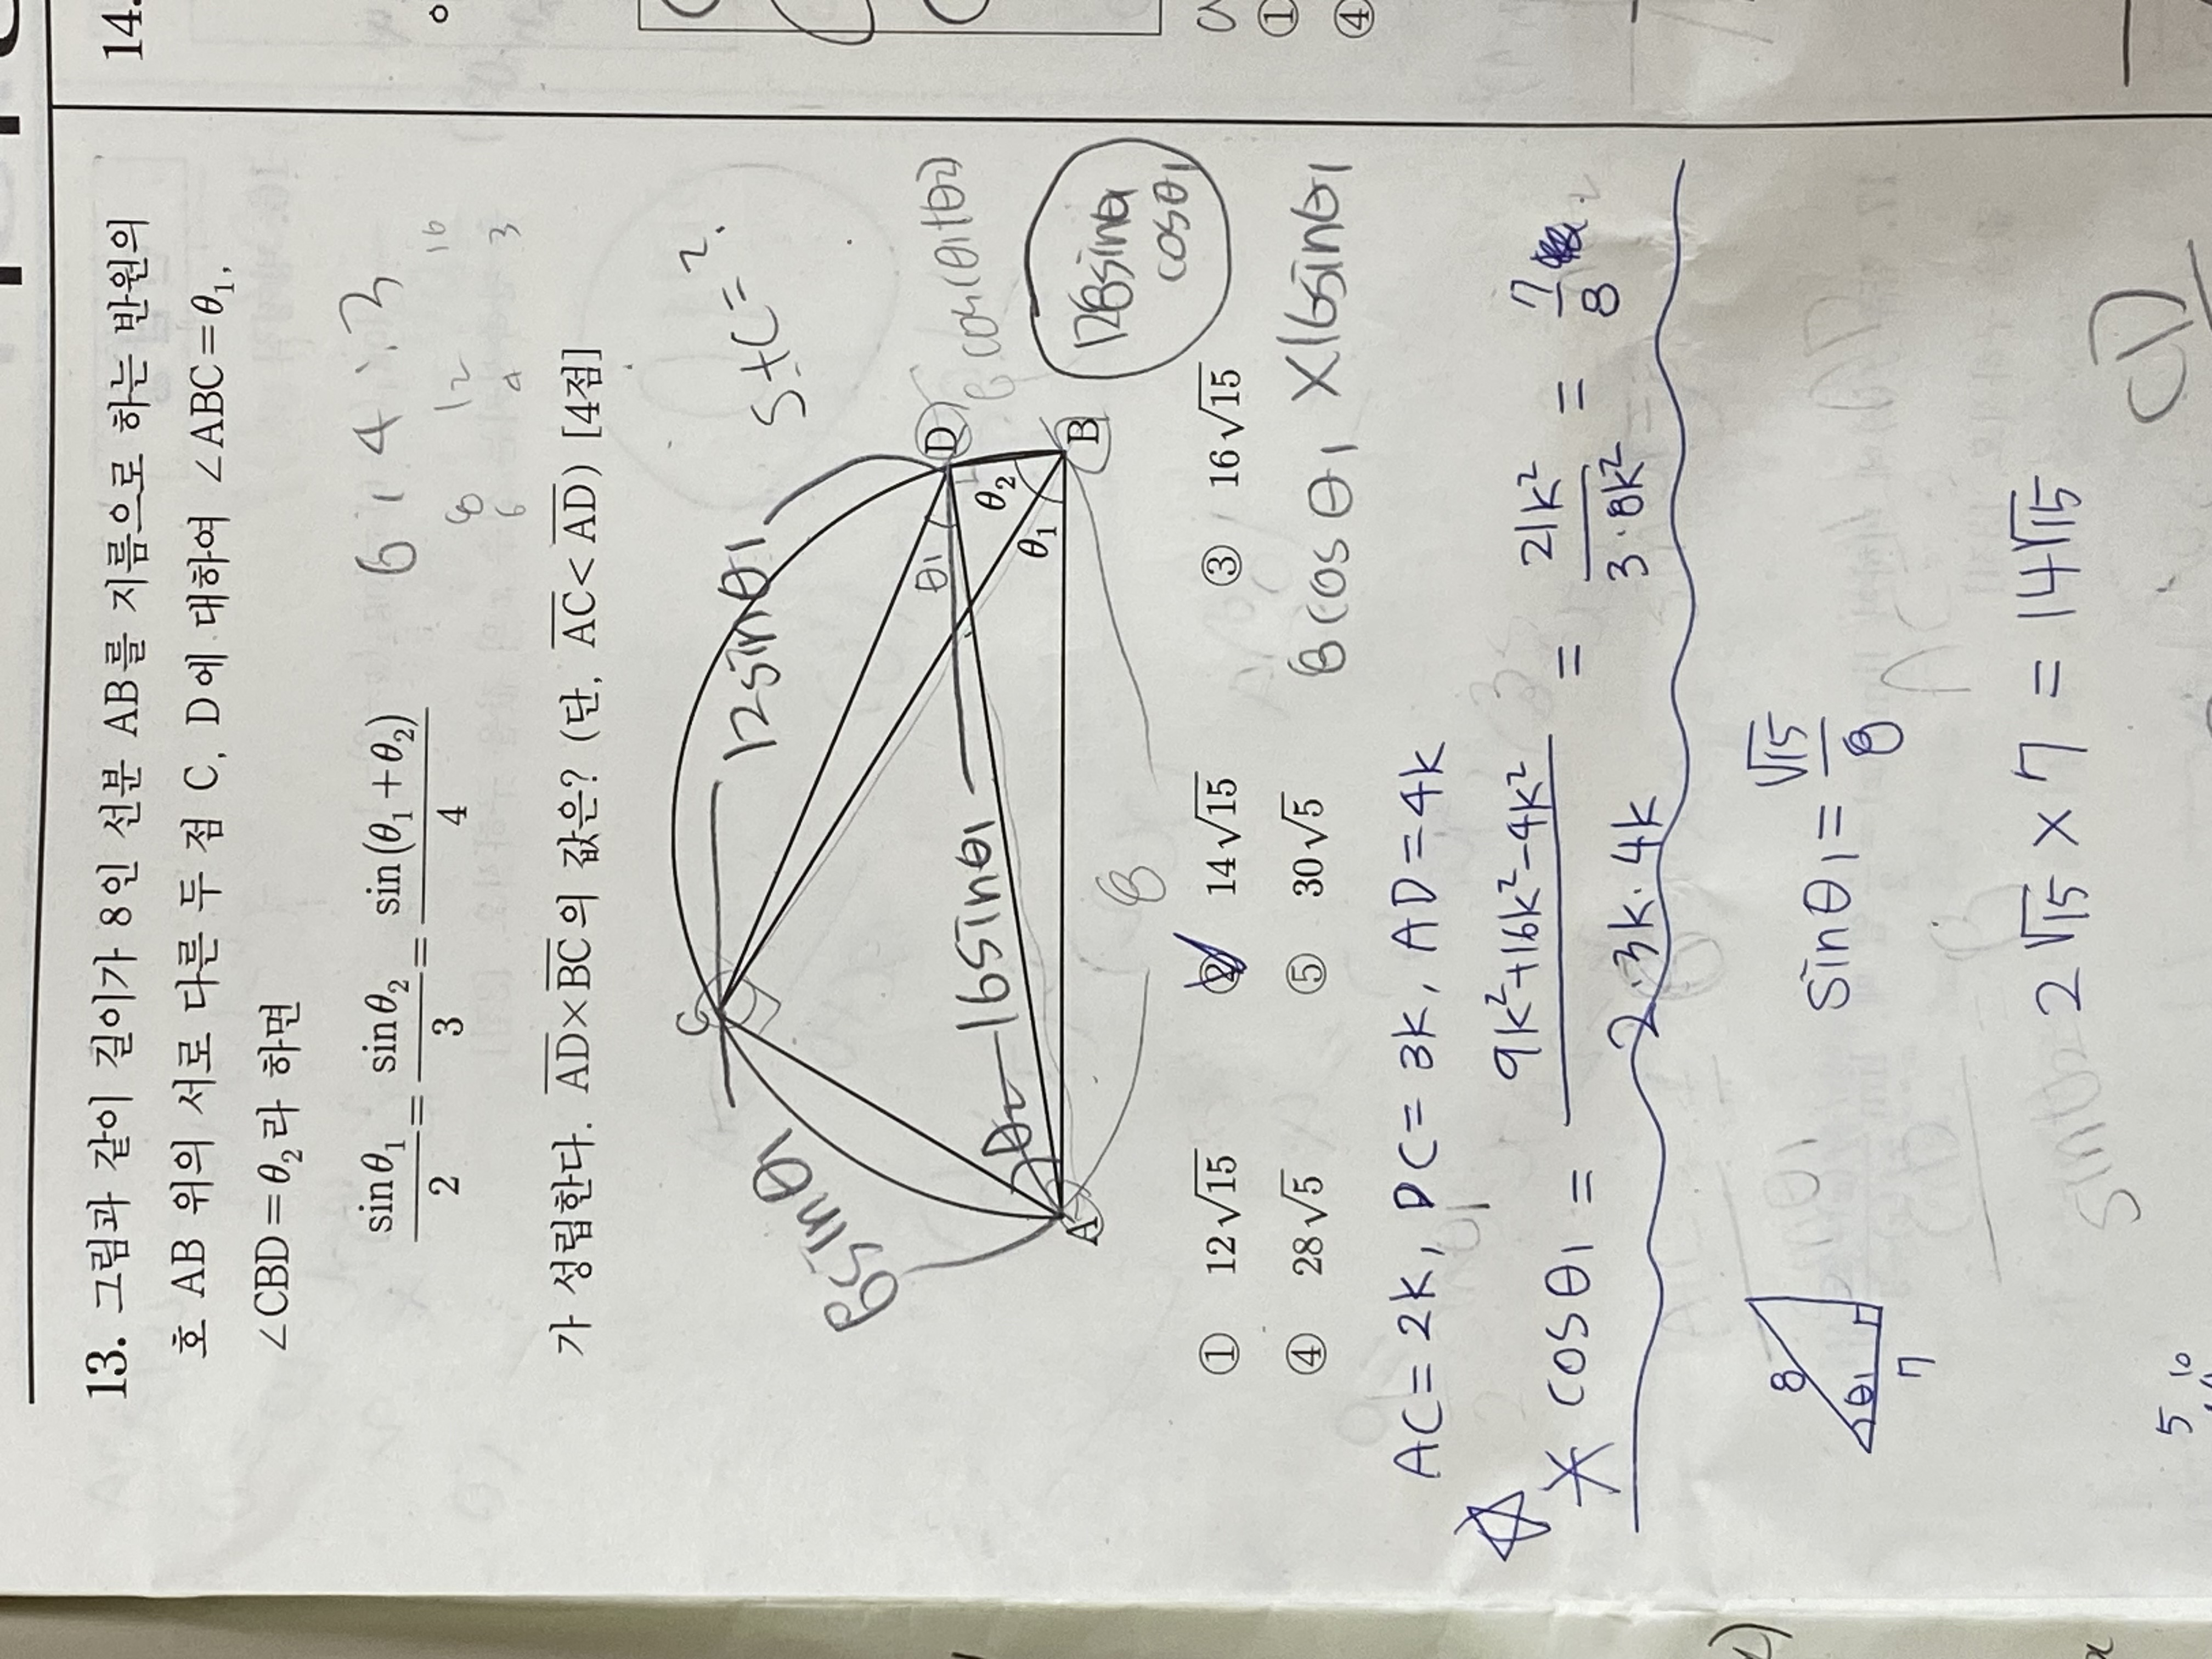 14.
13. 그림과 같이 길이가 8인 선분 AB를 지름으로 하는 반원의
호 AB 위의 서로 다른 두 점 C, D에 대하여 ∠ABC=θ₁,
∠CBD=θ₂라 하면
sinθ₁/2 = sinθ₂/3 = sin(θ₁+θ₂)/4
6 : 4 : 3
8 12 16
6 9 3
가 성립한다. AD×BC의 값은? (단, AC<AD) [4점]
S+C=?
12sinθ1
8sinθ1
16sinθ1
C
D
θ1
θ₂
θ₁
θ2
A
B
8
8cos(θ1+θ2)
128sinθ1
cosθ1
① 12√15 ② 14√15 ③ 16√15
④ 28√5 ⑤ 30√5
8cosθ1 ×16sinθ1
①
④
AC=2k, DC=3k, AD=4k
cosθ1 = (9k²+16k²-4k²)/(2·3k·4k) = 21k²/(3·8k²) = 7/8
8
θ1
7
sinθ1 = √15/8
2√15 × 7 = 14√15
sinθ2